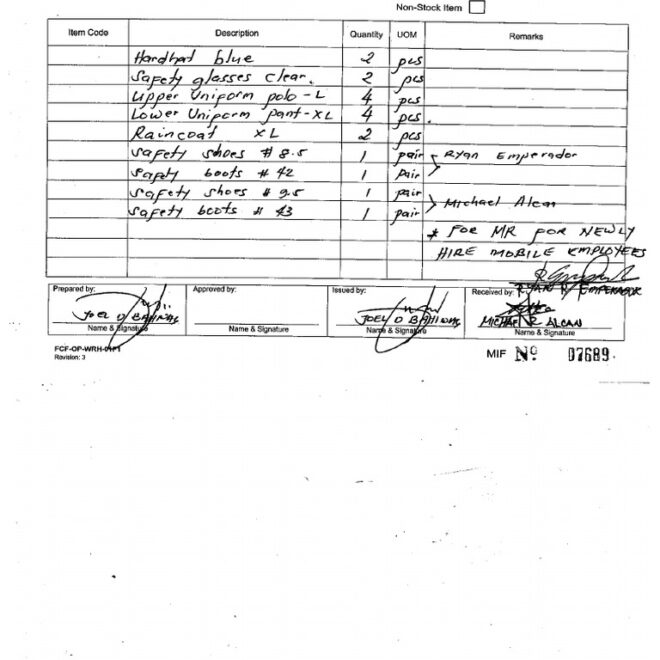 Non-Stock Item
Item Code Description Quantity UOM Remarks
Hardhat blue 2 pcs
Safety glasses clear. 2 pcs
Upper Uniform polo - L 4 pcs
Lower Uniform pant - XL 4 pcs.
Raincoat XL 2 pcs
Safety shoes # 8.5 1 pair Ryan Emperador
Safety boots # 42 1 pair
Safety shoes # 9.5 1 pair Michael Alcan
Safety boots # 43 1 pair
* FOR MR FOR NEWLY
HIRE MOBILE EMPLOYEES
Prepared by: Approved by: Issued by: Received by: RYAN P. EMPERADOR
JOEL D JOEL D MICHAEL R ALCAN
Name & Signature Name & Signature Name & Signature Name & Signature
FCF-OP-WRH-
Revision: 3
MIF Nº 07689